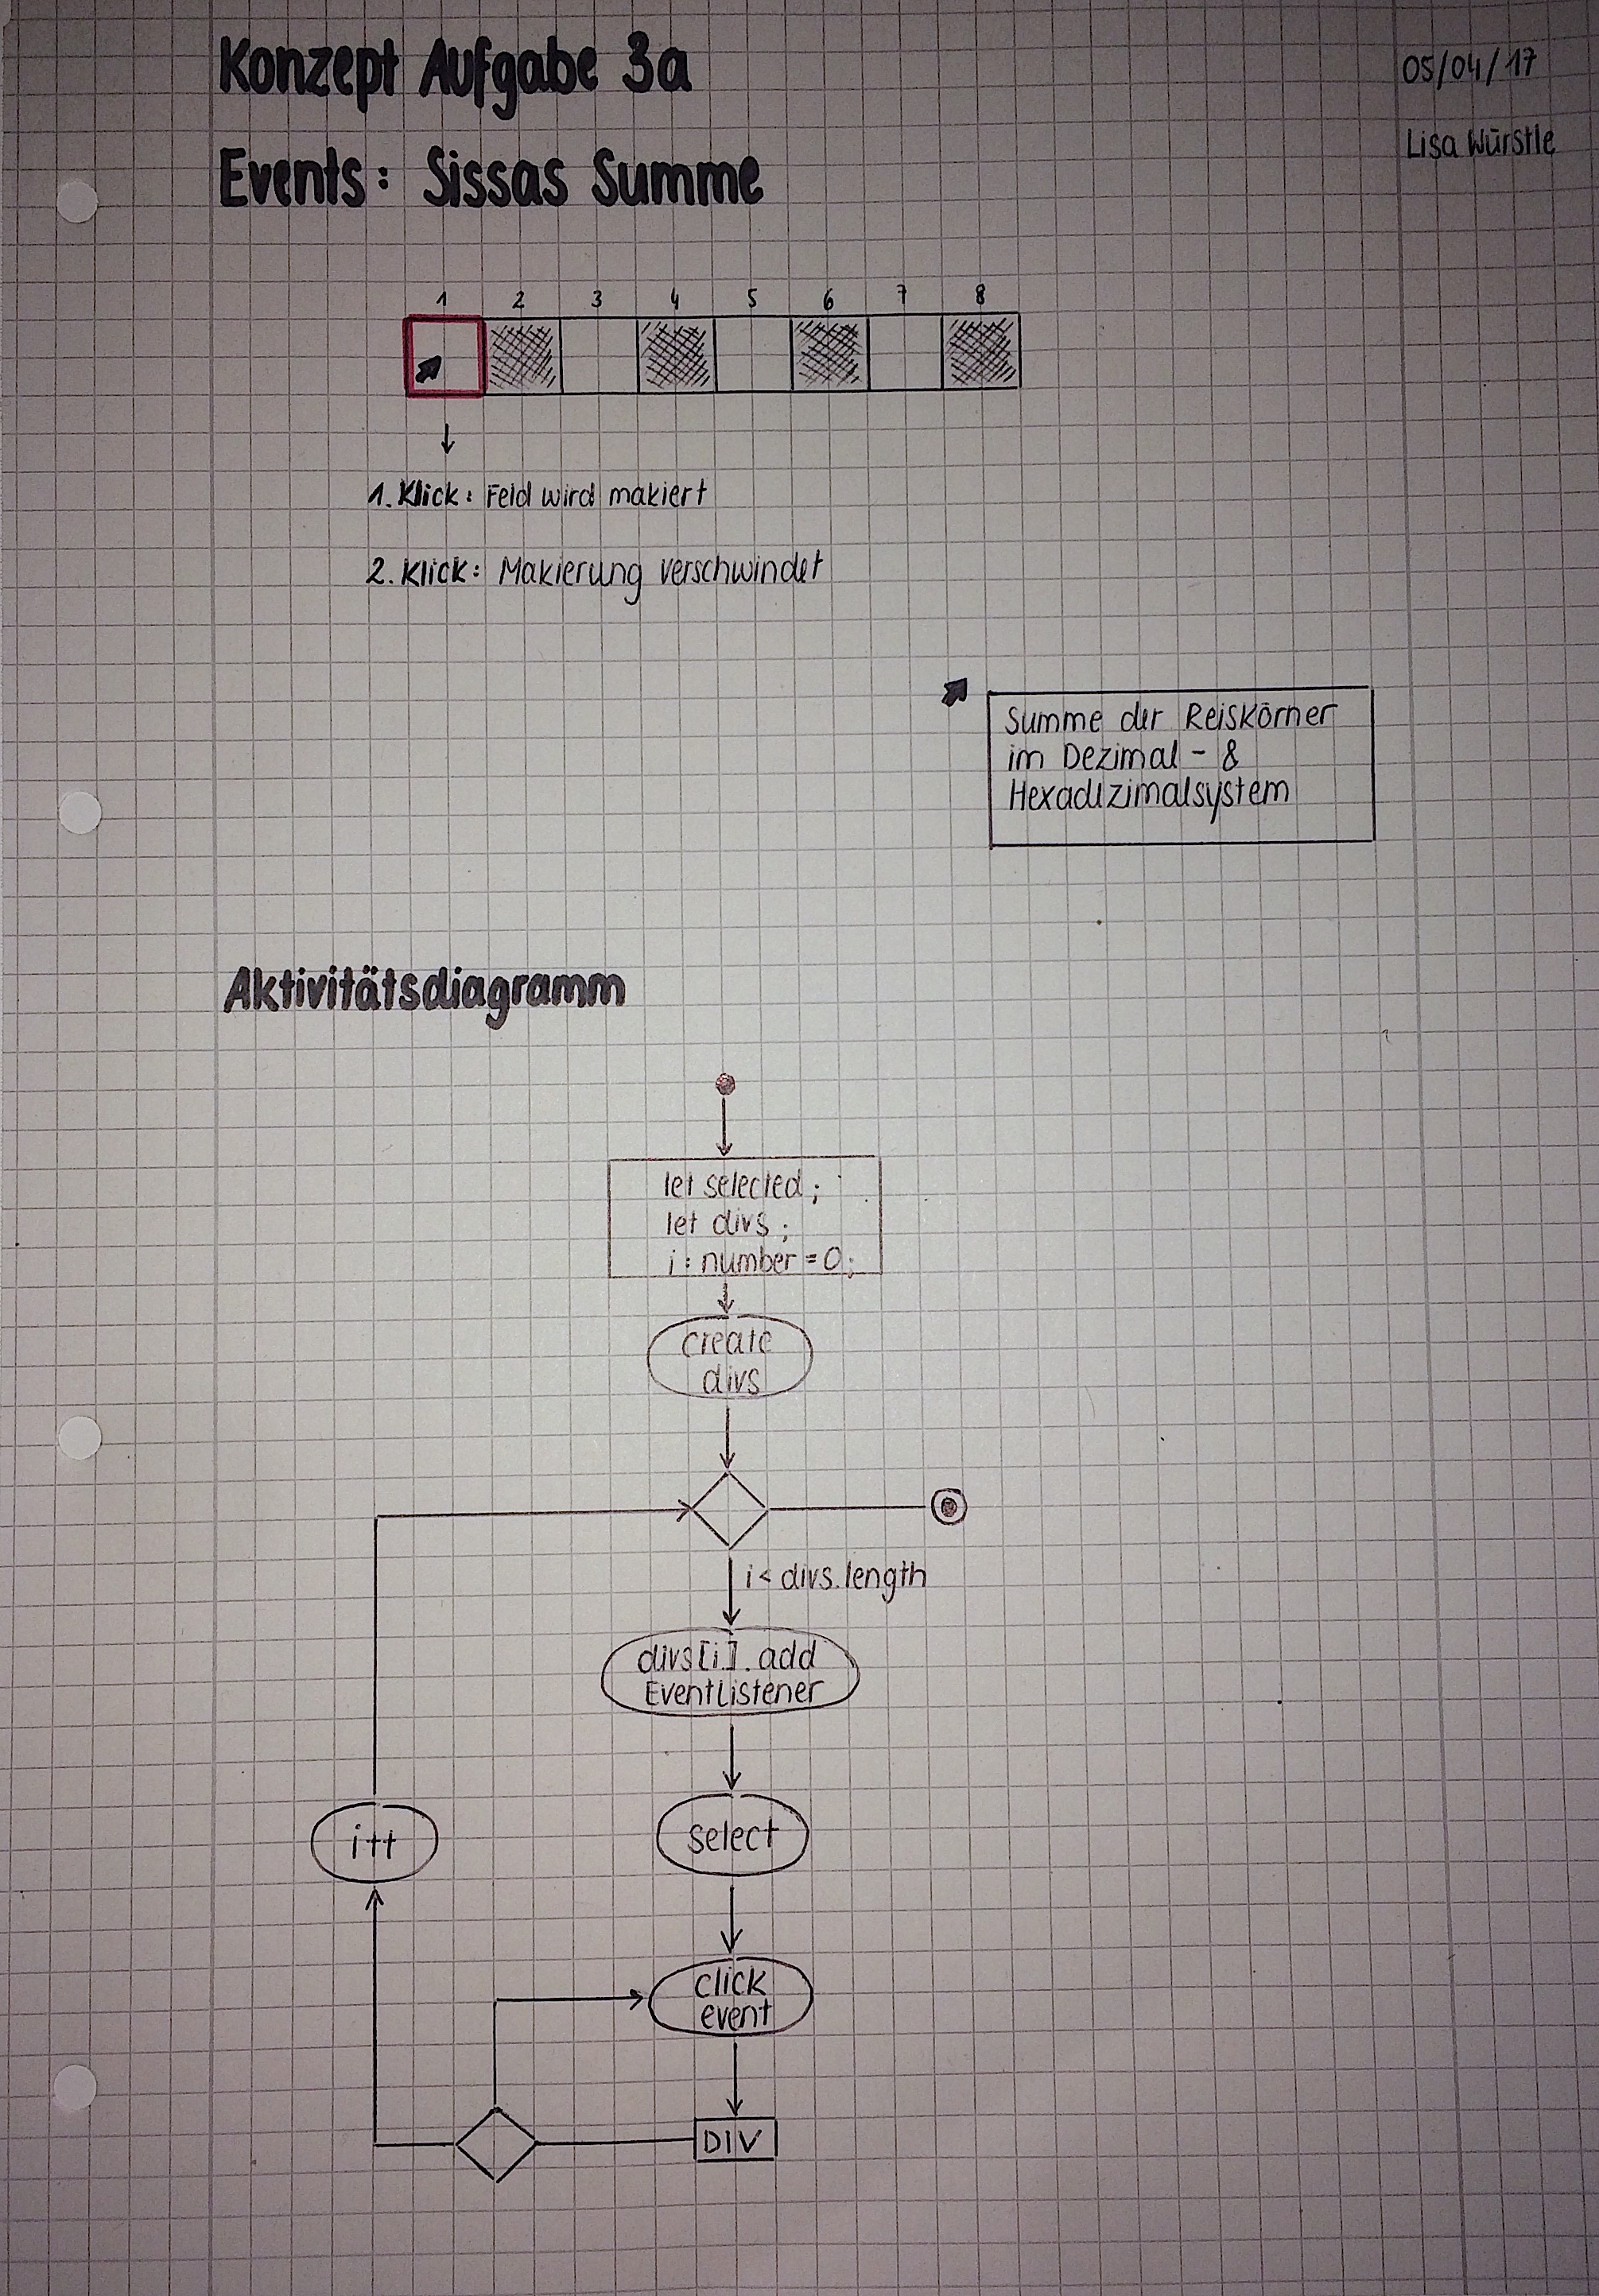 Konzept Aufgabe 3a
05/04/17
Events: Sissas Summe
Lisa Würstle
1 2 3 4 5 6 7 8
1. Klick: Feld wird makiert
2. Klick: Makierung verschwindet
Summe der Reiskörner
im Dezimal - &
Hexadezimalsystem
Aktivitätsdiagramm
let selected;
let divs;
i: number = 0;
create
divs
i < divs.length
divs[i].add
EventListener
i++
select
click
event
DIV